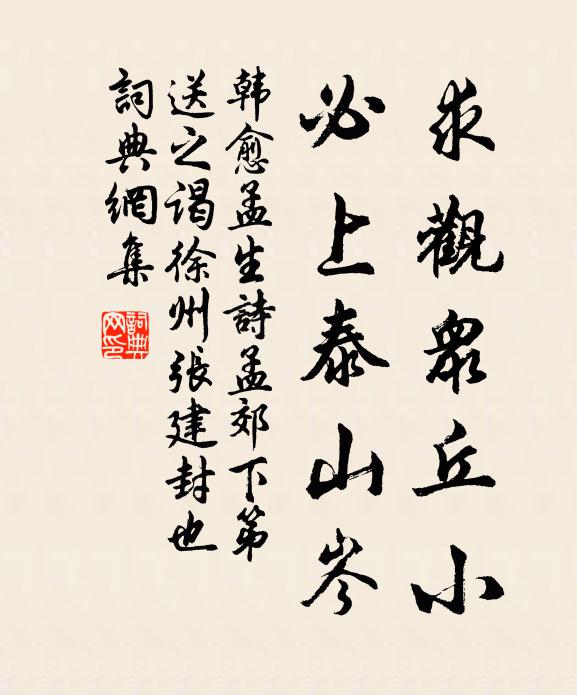 求觀眾丘小
必上泰山岑
韩愈孟生詩孟郊下第
送之谒徐州張建封也
詞典網集
詞典
网印